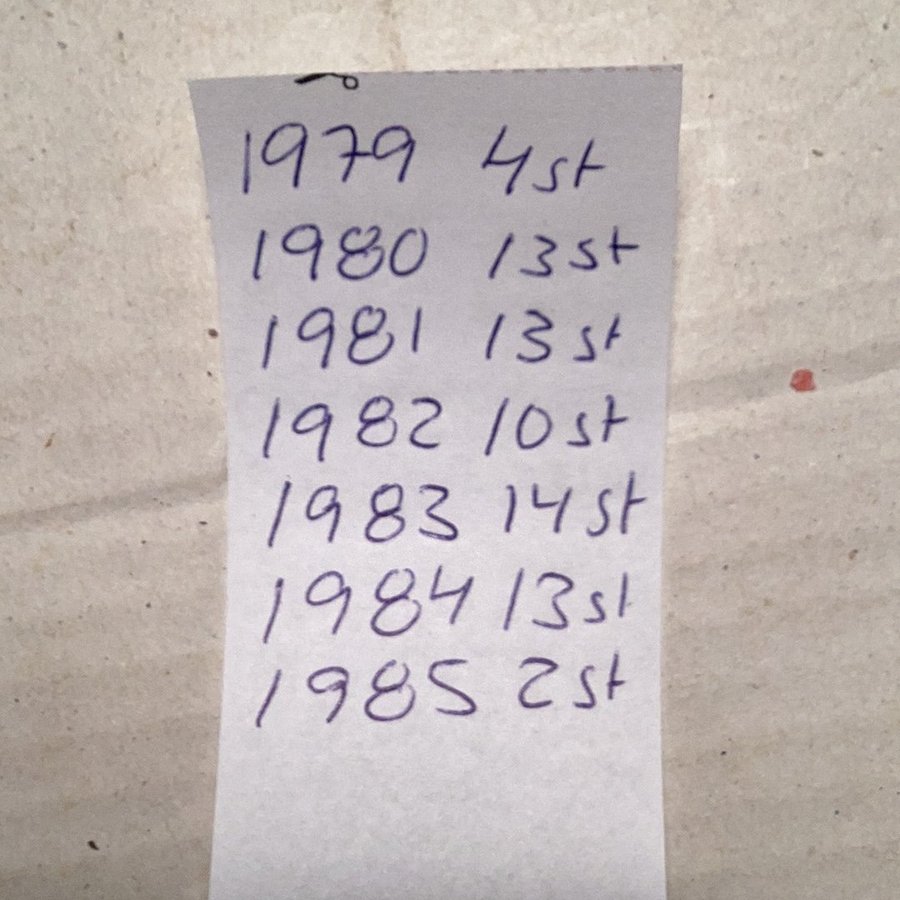 1979 4st
1980 13st
1981 13st
1982 10st
1983 14st
1984 13st
1985 2st